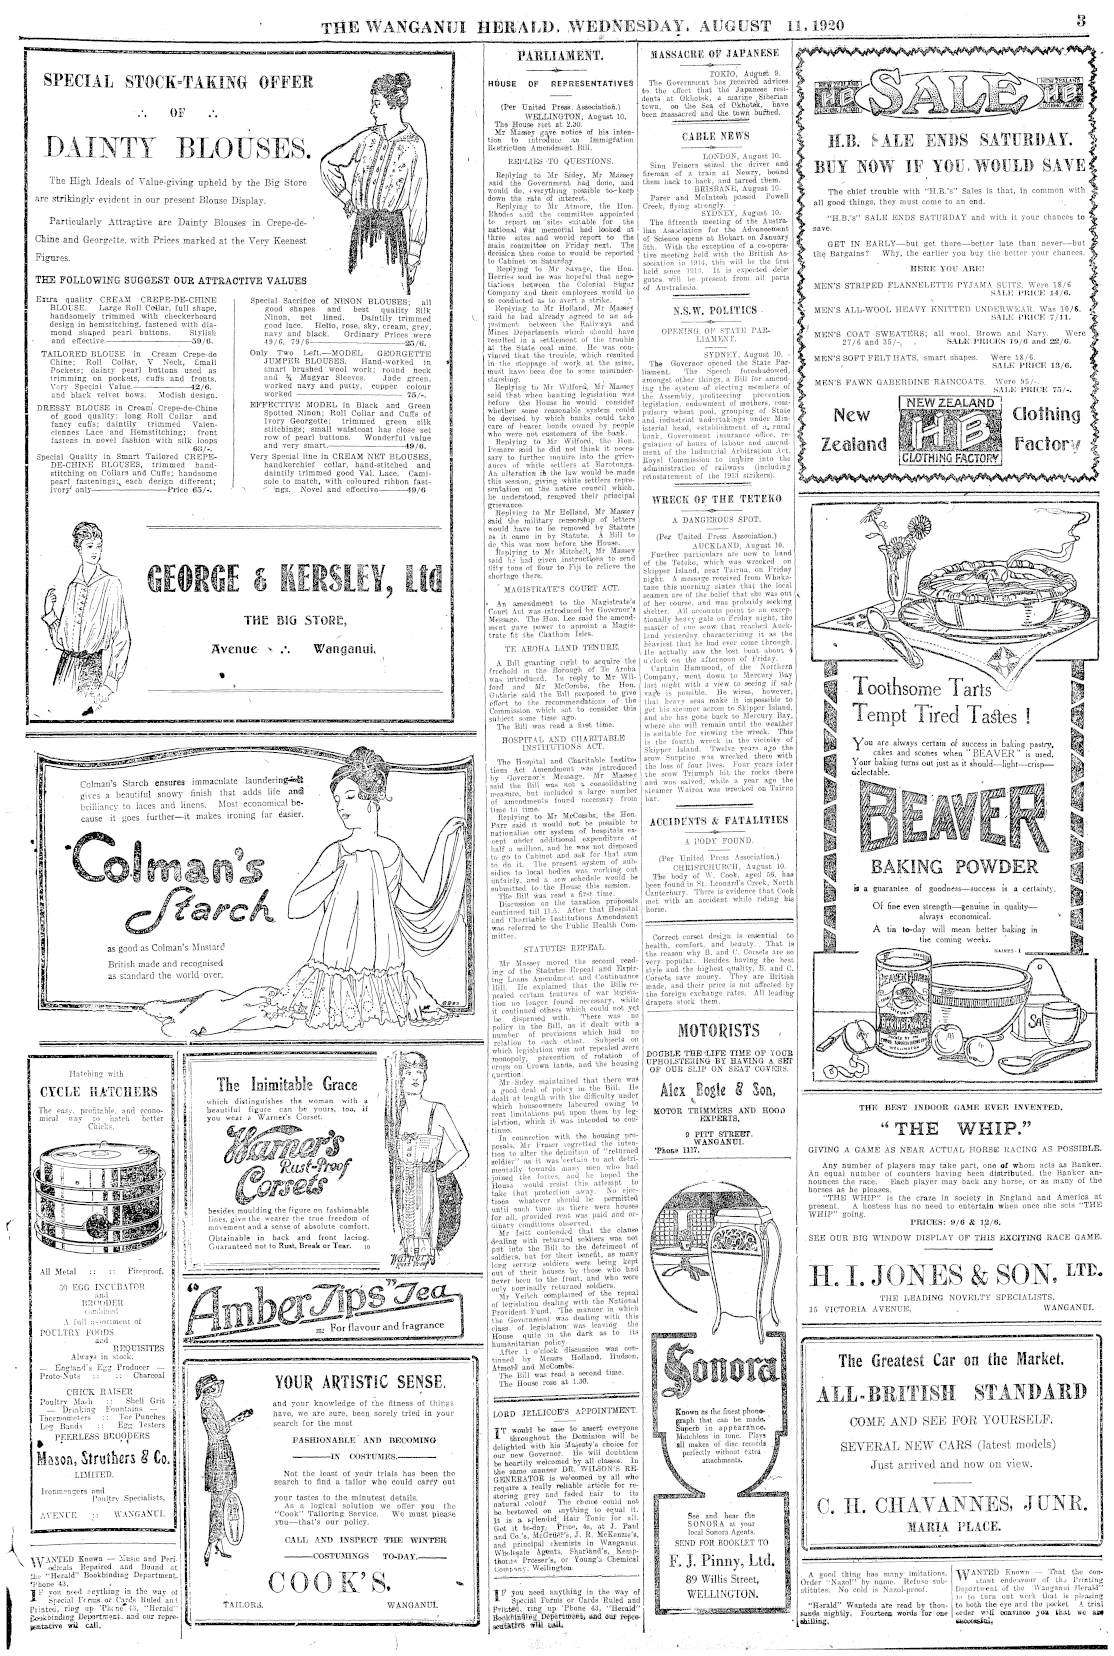 THE WANGANUI HERALD, WEDNESDAY, AUGUST 11, 1920
3
SPECIAL STOCK-TAKING OFFER
OF
DAINTY BLOUSES.
The High Ideals of Value-giving upheld by the Big Store
are strikingly evident in our present Blouse Display.
Particularly Attractive are Dainty Blouses in Crepe-de-
Chine and Georgette, with Prices marked at the Very Keenest
Figures.
THE FOLLOWING SUGGEST OUR ATTRACTIVE VALUES
Extra quality CREAM CREPE-DE-CHINE
BLOUSE. Large Roll Collar, full shape,
handsomely trimmed with checkerboard
design in hemstitching, fastened with dia-
mond shaped pearl buttons. Stylish
and effective.——59/6.
TAILORED BLOUSE in Cream Crepe-de
Chine; Roll Collar, V Neck, Small
Pockets; dainty pearl buttons used as
trimming on pockets, cuffs and fronts.
Very Special Value.——42/6.
and black velvet bows. Modish design.
DRESSY BLOUSE in Cream Crepe-de-Chine
of good quality; long Roll Collar and
fancy cuffs; daintily trimmed Valen-
ciennes Lace and Hemstitching; front
fastens in novel fashion with silk loops
63/-.
Special Quality in Smart Tailored CREPE-
DE-CHINE BLOUSES, trimmed hand-
stitching on Collars and Cuffs; handsome
pearl fastenings, each design different;
Ivory only——Price 65/-.
Special Sacrifice of NINON BLOUSES; all
good shapes and best quality Silk
Ninon, not lined. Daintily trimmed
good lace. Helio, rose, sky, cream, grey,
navy and black. Ordinary Prices were
49/6, 79/6——25/6.
Only Two Left.—MODEL GEORGETTE
JUMPER BLOUSES. Hand-worked in
smart brushed wool work; round neck
and ¾ Magyar Sleeves. Jade green,
worked navy and putty, copper colour
worked——75/-.
EFFECTIVE MODEL in Black and Green
Spotted Ninon; Roll Collar and Cuffs of
Ivory Georgette; trimmed green silk
stitchings; small waistcoat has close set
row of pearl buttons. Wonderful value
and very smart.——49/6.
Very Special line in CREAM NET BLOUSES,
handkerchief collar, hand-stitched and
daintily trimmed good Val. Lace. Cami-
sole to match, with coloured ribbon fast-
ings. Novel and effective——49/6
GEORGE & KERSLEY, Ltd
THE BIG STORE,
Avenue Wanganui.
Colman's Starch ensures immaculate laundering—it
gives a beautiful snowy finish that adds life and
brilliancy to laces and linens. Most economical be-
cause it goes further—it makes ironing far easier.
Colman's
Starch
as good as Colman's Mustard
British made and recognised
as standard the world over.
Hatching with
CYCLE HATCHERS
The easy, profitable, and econo-
mical way to hatch better
Chicks.
All Metal :: :: Fireproof.
50 EGG INCUBATOR
and
BROODER
combined
A full assortment of
POULTRY FOODS
and
REQUISITES
Always in stock.
— England's Egg Producer —
Proto-Nuts :: :: Charcoal
CHICK RAISER
Poultry Mash :: Shell Grit
— Drinking Fountains —
Thermometers :: Toe Punches
Leg Bands :: Egg Testers
PEERLESS BROODERS
Mason, Struthers & Co.
LIMITED.
Ironmongers and
Poultry Specialists,
AVENUE :: WANGANUI.
WANTED Known — Music and Peri-
odicals Repaired and Bound at
the "Herald" Bookbinding Department.
'Phone 43.
IF you need anything in the way of
Special Forms or Cards Ruled and
Printed, ring up 'Phone 43, "Herald"
Bookbinding Department, and our repre-
sentative will call.
The Inimitable Grace
which distinguishes the woman with a
beautiful figure can be yours, too, if
you wear a Warner's Corset.
Warner's
Rust-Proof
Corsets
besides moulding the figure on fashionable
lines, give the wearer the true freedom of
movement and a sense of absolute comfort.
Obtainable in back and front lacing.
Guaranteed not to Rust, Break or Tear. 10
"Amber Tips" Tea
For flavour and fragrance
YOUR ARTISTIC SENSE,
and your knowledge of the fitness of things
have, we are sure, been sorely tried in your
search for the most
FASHIONABLE AND BECOMING
——IN COSTUMES.——
Not the least of your trials has been the
search to find a tailor who could carry out
your tastes to the minutest details.
As a logical solution we offer you the
"Cook" Tailoring Service. We must please
you—that's our policy.
CALL AND INSPECT THE WINTER
——COSTUMINGS TO-DAY.——
COOK'S,
TAILORS. WANGANUI.
PARLIAMENT.
HOUSE OF REPRESENTATIVES
(Per United Press Association.)
WELLINGTON, August 10.
The House met at 2.30.
Mr Massey gave notice of his inten-
tion to introduce an Immigration
Restriction Amendment Bill.
REPLIES TO QUESTIONS.
Replying to Mr Sidey, Mr Massey
said the Government had done, and
would do, everything possible to keep
down the rate of interest.
Replying to Mr Atmore, the Hon.
Rhodes said the committee appointed
to report on sites suitable for the
national war memorial had looked at
three sites and would report to the
main committee on Friday next. The
decision then come to would be reported
to Cabinet on Saturday.
Replying to Mr Savage, the Hon.
Herries said he was hopeful that nego-
tiations between the Colonial Sugar
Company and their employees would be
so conducted as to avert a strike.
Replying to Mr Holland, Mr Massey
said he had already agreed to an ad-
justment between the Railways and
Mines Departments which should have
resulted in a settlement of the trouble
at the State coal mine. He was con-
vinced that the trouble, which resulted
in the stoppage of work at the mine,
must have been due to some misunder-
standing.
Replying to Mr Wilford, Mr Massey
said that when banking legislation was
before the House he would consider
whether some reasonable system could
be devised by which banks could take
care of bearer bonds owned by people
who were not customers of the bank.
Replying to Mr Wilford, the Hon.
Pomare said he did not think it neces-
sary to further inquire into the griev-
ances of white settlers at Rarotonga.
An alteration in the law would be made
this session, giving white settlers repre-
sentation on the native council which,
he understood, removed their principal
grievance.
Replying to Mr Holland, Mr Massey
said the military censorship of letters
would have to be removed by Statute
as it came in by Statute. A Bill to
do this was now before the House.
Replying to Mr Mitchell, Mr Massey
said he had given instructions to send
fifty tons of flour to Fiji to relieve the
shortage there.
MAGISTRATE'S COURT ACT.
An amendment to the Magistrate's
Court Act was introduced by Governor's
Message. The Hon. Lee said the amend-
ment gave power to appoint a Magis-
trate for the Chatham Isles.
TE AROHA LAND TENURE.
A Bill granting right to acquire the
freehold in the Borough of Te Aroha
was introduced. In reply to Mr Wil-
ford and Mr McCombs, the Hon.
Guthrie said the Bill proposed to give
effect to the recommendations of the
Commission which sat to consider this
subject some time ago.
The Bill was read a first time.
HOSPITAL AND CHARITABLE
INSTITUTIONS ACT.
The Hospital and Charitable Institu-
tions Act Amendment was introduced
by Governor's Message. Mr Massey
said the Bill was not a consolidating
measure, but included a large number
of amendments found necessary from
time to time.
Replying to Mr McCombs, the Hon.
Parr said it would not be possible to
nationalise our system of hospitals ex-
cept under additional expenditure of
half a million, and he was not disposed
to go to Cabinet and ask for that sum
to do it. The present system of sub-
sidies to local bodies was working out
unfairly, and a new schedule would be
submitted to the House this session.
The Bill was read a first time.
Discussion on the taration proposals
continued till 11.5. After that Hospital
and Charitable Institutions Amendment
was referred to the Public Health Com-
mittee.
STATUTES REPEAL.
Mr Massey moved the second read-
ing of the Statutes Repeal and Expir-
ing Loans Amendment and Continuance
Bill. He explained that the Bills re-
pealed certain features of war legisla-
tion no longer found necessary, while
it continued others which could not yet
be dispensed with. There was no
policy in the Bill, as it dealt with a
number of provisions which had no
relation to each other. Subjects on
which legislation was not repealed were
monopoly, prevention of rotation of
crops on Crown lands, and the housing
question.
Mr Sidey maintained that there was
a good deal of policy in the Bill. He
dealt at length with the difficulty under
which houseowners laboured owing to
rent limitations put upon them by leg-
islation, which it was intended to con-
tinue.
In connection with the housing pro-
posals, Mr Fraser regretted the inten-
tion to alter the definition of "returned
soldier" as it was certain to act detri-
mentally towards many men who had
joined the forces, and he hoped the
House would resist this attempt to
take that protection away. No ejec-
tions whatever should be permitted
until such time as there were houses
for all, provided rent was paid and or-
dinary conditions observed.
Mr Isitt contended that the clause
dealing with returned soldiers was not
put into the Bill to the detriment of
soldiers, but for their benefit, as many
long service soldiers were being kept
out of their houses by those who had
never been to the front, and who were
only nominally returned soldiers.
Mr Veitch complained of the repeal
of legislation dealing with the National
Provident Fund. The manner in which
the Government was dealing with this
class of legislation was leaving the
House quite in the dark as to its
humanitarian policy.
After 1 o'clock discussion was con-
tinued by Messrs Holland, Hudson,
Atmore and McCombs.
The Bill was read a second time.
The House rose at 1.30.
LORD JELLICOE'S APPOINTMENT.
IT would be safe to assert everyone
throughout the Dominion will be
delighted with his Majesty's choice for
our new Governor. He will doubtless
be heartily welcomed by all classes. In
the same manner DR. WILSON'S RE-
GENERATOR is welcomed by all who
require a really reliable article for re-
storing grey and faded hair to its
natural colour. The choice could not
be bestowed on anything to equal it.
It is a splendid Hair Tonic for all.
Get it to-day; Price, 4s, at J. Paul
and Co.'s, McGruer's, J. R. McKenzie's,
and principal chemists in Wanganui.
Wholesale Agents, Sharland's, Kemp-
thorne Prosser's, or Young's Chemical
Company, Wellington.
IF you need anything in the way of
Special Forms or Cards Ruled and
Printed, ring up 'Phone 43, "Herald"
Bookbinding Department, and our repre-
sentative will call.
MASSACRE OF JAPANESE
TOKIO, August 9.
The Government has received advices
to the effect that the Japanese resi-
dents at Okhotsk, a marine Siberian
town, on the Sea of Okhotsk, have
been massacred and the town burned.
CABLE NEWS
LONDON, August 10.
Sinn Feiners seized the driver and
fireman of a train at Newry, bound
them back to back, and tarred them.
BRISBANE, August 10.
Parer and McIntosh passed Powell
Creek, flying strongly.
SYDNEY, August 10.
The fifteenth meeting of the Austra-
lian Association for the Advancement
of Science opens at Hobart on January
5th. With the exception of a co-opera-
tive meeting held with the British As-
sociation in 1914, this will be the first
held since 1913. It is expected dele-
gates will be present from all parts
of Australasia.
N.S.W. POLITICS
OPENING OF STATE PAR-
LIAMENT.
SYDNEY, August 10.
The Governor opened the State Par-
liament. The Speech foreshadowed,
amongst other things, a Bill for amend-
ing the system of electing members of
the Assembly, profiteering prevention
legislation, endowment of mothers, com-
pulsory wheat pool, grouping of State
and industrial undertakings under Min-
isterial head, establishment of a rural
bank, Government insurance office, re-
gulation of hours of labour and amend-
ment of the Industrial Arbitration Act,
Royal Commission to inquire into the
administration of railways (including
reinstatement of the 1913 strikers).
WRECK OF THE TETEKO
A DANGEROUS SPOT.
(Per United Press Association.)
AUCKLAND, August 10.
Further particulars are now to hand
of the Teteko, which was wrecked on
Skipper Island, near Tairua, on Friday
night. A message received from Whaka-
tane this morning states that the local
seamen are of the belief that she was out
of her course, and was probably seeking
shelter. All accounts point to an excep-
tionally heavy gale on Friday night, the
master of one scow that reached Auck-
land yesterday characterising it as the
heaviest that he had ever come through.
He actually saw the lost boat about 4
o'clock on the afternoon of Friday.
Captain Hammond, of the Northern
Company, went down to Mercury Bay
last night with a view to seeing if sal-
vage is possible. He wires, however,
that heavy seas make it impossible to
get his steamer across to Skipper Island,
and she has gone back to Mercury Bay,
where she will remain until the weather
is suitable for viewing the wreck. This
is the fourth wreck in the vicinity of
Skipper Island. Twelve years ago the
scow Surprise was wrecked there with
the loss of four lives. Four years later
the scow Triumph hit the rocks there
and was salved, while a year ago the
steamer Wairoa was wrecked on Tairua
bar.
ACCIDENTS & FATALITIES
A BODY FOUND.
(Per United Press Association.)
CHRISTCHURCH, August 10.
The body of W. Cook, aged 56, has
been found in St. Leonard's Creek, North
Canterbury. There is evidence that Cook
met with an accident while riding his
horse.
Correct corset design is essential to
health, comfort, and beauty. That is
the reason why B. and C. Corsets are so
very popular. Besides having the best
style and the highest quality, B. and C.
Corsets save money. They are British
made, and their price is not affected by
the foreign exchange rates. All leading
drapers stock them.
MOTORISTS
DOUBLE THE LIFE TIME OF YOUR
UPHOLSTERING BY HAVING A SET
OF OUR SLIP ON SEAT COVERS.
Alex Bogle & Son,
MOTOR TRIMMERS AND HOOD
EXPERTS,
9 PITT STREET.
WANGANUI.
'Phone 1117.
Sonora
Known as the finest phono-
graph that can be made.
Superb in appearance.
Matchless in tone. Plays
all makes of disc records
perfectly without extra
attachments.
See and hear the
SONORA at your
local Sonora Agents.
SEND FOR BOOKLET TO
F. J. Pinny, Ltd.
89 Willis Street,
WELLINGTON.
SALE
H.B. SALE ENDS SATURDAY.
BUY NOW IF YOU WOULD SAVE
The chief trouble with "H.B.'s" Sales is that, in common with
all good things, they must come to an end.
"H.B.'s" SALE ENDS SATURDAY and with it your chances to
save.
GET IN EARLY—but get there—better late than never—but
the Bargains? Why, the earlier you buy the better your chances.
HERE YOU ARE!
MEN'S STRIPED FLANNELETTE PYJAMA SUITS. Were 18/6
SALE PRICE 14/6.
MEN'S ALL-WOOL HEAVY KNITTED UNDERWEAR. Was 10/6.
SALE PRICE 7/11.
MEN'S COAT SWEATERS; all wool, Brown and Navy. Were
27/6 and 35/-, SALE PRICES 19/6 and 22/6.
MEN'S SOFT FELT HATS, smart shapes. Were 18/6.
SALE PRICE 13/6.
MEN'S FAWN GABERDINE RAINCOATS. Were 95/-.
SALE PRICE 75/-.
New
Zealand
NEW ZEALAND
HB
CLOTHING FACTORY
Clothing
Factory
Toothsome Tarts
Tempt Tired Tastes !
You are always certain of success in baking pastry,
cakes and scones when "BEAVER" is used.
Your baking turns out just as it should—light—crisp—
delectable.
BEAVER
BAKING POWDER
is a guarantee of goodness—success is a certainty.
Of fine even strength—genuine in quality—
always economical.
A tin to-day will mean better baking in
the coming weeks.
THE BEST INDOOR GAME EVER INVENTED.
"THE WHIP."
GIVING A GAME AS NEAR ACTUAL HORSE RACING AS POSSIBLE.
Any number of players may take part, one of whom acts as Banker.
An equal number of counters having been distributed, the Banker an-
nounces the race. Each player may back any horse, or as many of the
horses as he pleases.
"THE WHIP" is the craze in society in England and America at
present. A hostess has no need to entertain when once she sets "THE
WHIP" going.
PRICES: 9/6 & 12/6.
SEE OUR BIG WINDOW DISPLAY OF THIS EXCITING RACE GAME.
H. I. JONES & SON, LTD.
THE LEADING NOVELTY SPECIALISTS,
15 VICTORIA AVENUE, WANGANUI.
The Greatest Car on the Market.
ALL-BRITISH STANDARD
COME AND SEE FOR YOURSELF.
SEVERAL NEW CARS (latest models)
Just arrived and now on view.
C. H. CHAVANNES, JUNR.
MARIA PLACE.
A good thing has many imitations.
Order "Nazol" by name. Refuse sub-
stitutes. No cold is Nazol-proof.
"Herald" Wanteds are read by thou-
sands nightly. Fourteen words for one
shilling.
WANTED Known — That the con-
stant endeavour of the Printing
Department of the "Wanganui Herald"
is to turn out work that is pleasing
to both the eye and the pocket. A trial
order will convince you that we are
successful.